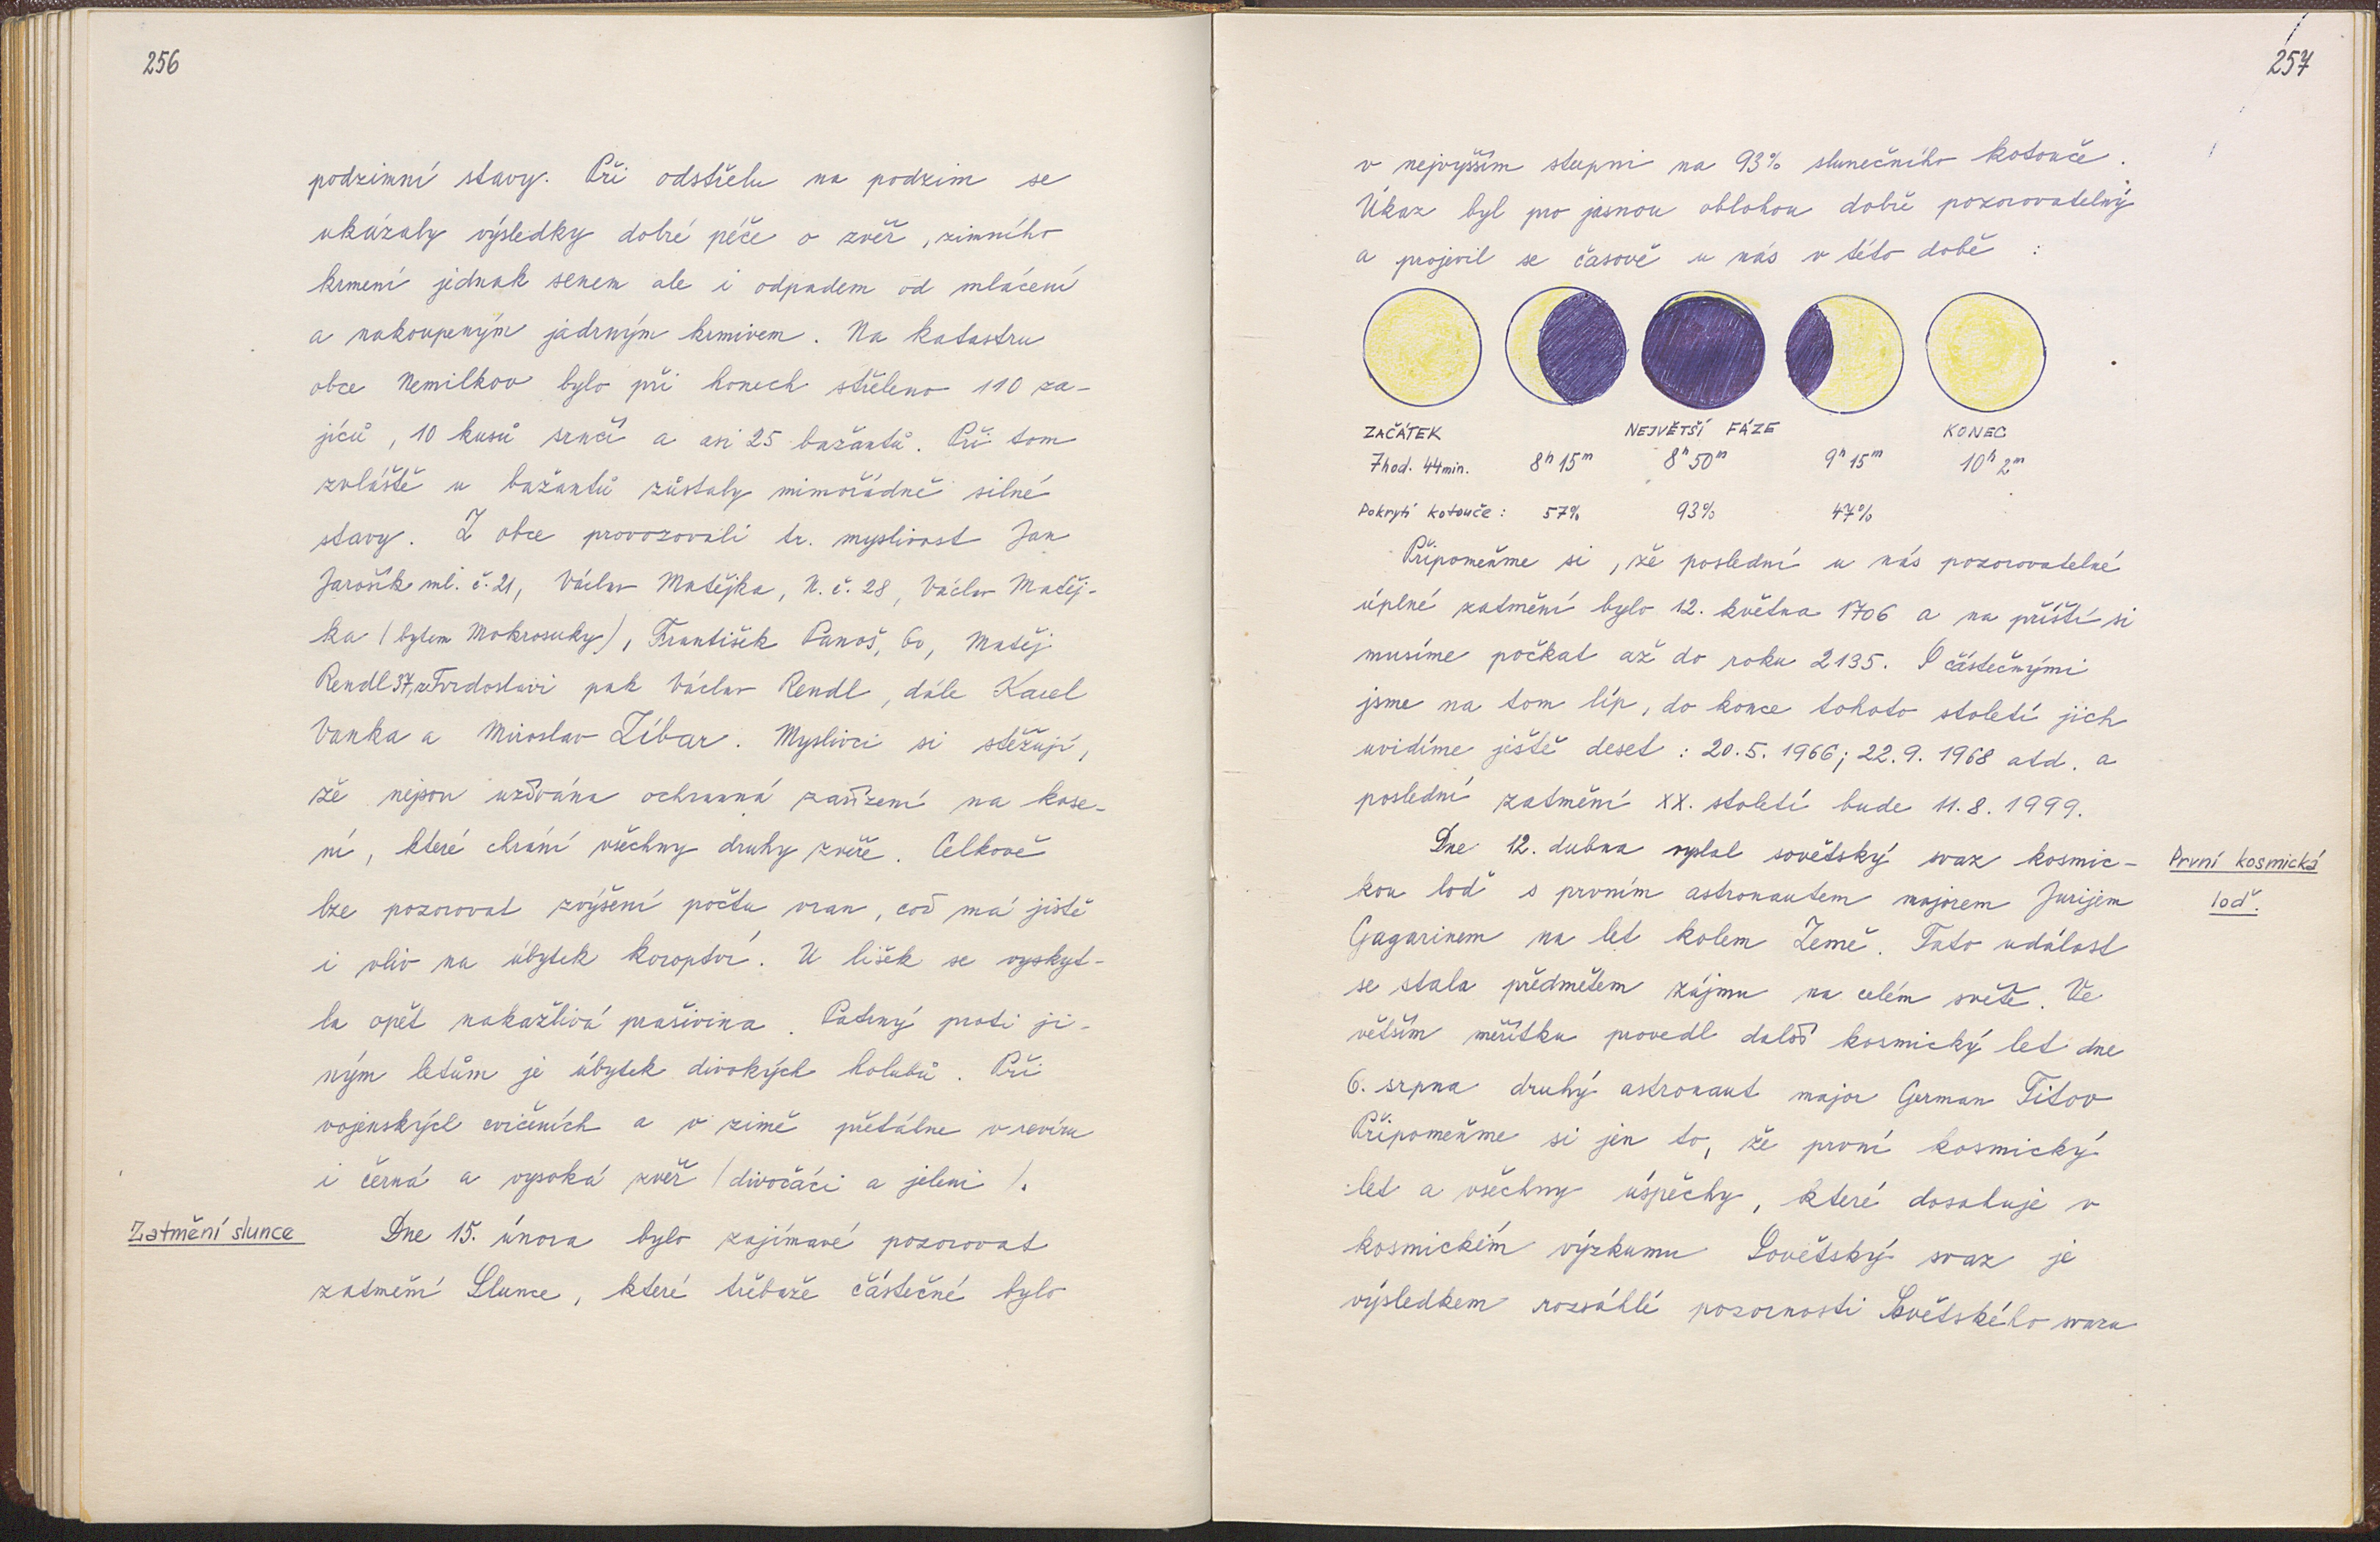 256
podzimní stavy. Při odstřelu na podzim se
ukázaly výsledky dobré péče o zvěř, zimního
krmení jednak senem ale i odpadem od mlácení
a nakoupeným jádrným krmivem. Na katastru
obce Nemilkov bylo při honech střeleno 110 za-
jíců, 10 kusů srnčí a asi 25 bažantů. Při tom
zvláště u bažantů zůstaly mimořádně silné
stavy. Z obce provozovali tr. myslivost Jan
Jarošík ml. č. 21, Václav Matějka, N. č. 28, Václav Matěj-
ka (bytem Mokrosuky), František Panoš, 60, Matěj
Rendl 37, z Tvrdoslavi pak Václav Rendl, dále Karel
Vanka a Miroslav Zíbar. Myslivci si stěžují,
že nejsou užívána ochranná zařízení na kose-
ní, které chrání všechny druhy zvěře. Celkově
lze pozorovat zvýšení počtu vran, což má jistě
i vliv na úbytek koroptví. U lišek se vyskyt-
la opět nakažlivá prašivina. Patrný proti ji-
ným létům je úbytek divokých holubů. Při
vojenských cvičeních a v zimě přetáhne v revíru
i černá a vysoká zvěř (divočáci a jeleni).
Zatmění slunce
Dne 15. února bylo zajímavé pozorovat
zatmění Slunce, které třebaže částečné bylo
257
v nejvyšším stupni na 93% slunečního kotouče.
Úkaz byl pro jasnou oblohou dobře pozorovatelný
a projevil se časově u nás v této době :
ZAČÁTEK NEJVĚTŠÍ FÁZE KONEC
7 hod. 44 min. 8h 15m 8h 50m 9h 15m 10h 2m
Pokrytí kotouče : 57% 93% 47%
Připomeňme si, že poslední u nás pozorovatelné
úplné zatmění bylo 12. května 1706 a na příští si
musíme počkat až do roku 2135. S částečnými
jsme na tom líp, do konce tohoto století jich
uvidíme ještě deset : 20. 5. 1966; 22. 9. 1968 atd. a
poslední zatmění XX. století bude 11. 8. 1999.
Dne 12. dubna vyslal sovětský svaz kosmic-
kou loď s prvním astronautem majorem Jurijem
První kosmická
loď.
Gagarinem na let kolem Země. Tato událost
se stala předmětem zájmu na celém světě. Ve
větším měřítku provedl další kosmický let dne
6. srpna druhý astronaut major German Titov
Připomeňme si jen to, že první kosmický
let a všechny úspěchy, které dosahuje v
kosmickém výzkumu Sovětský svaz je
výsledkem rozsáhlé pozornosti Sovětského svazu